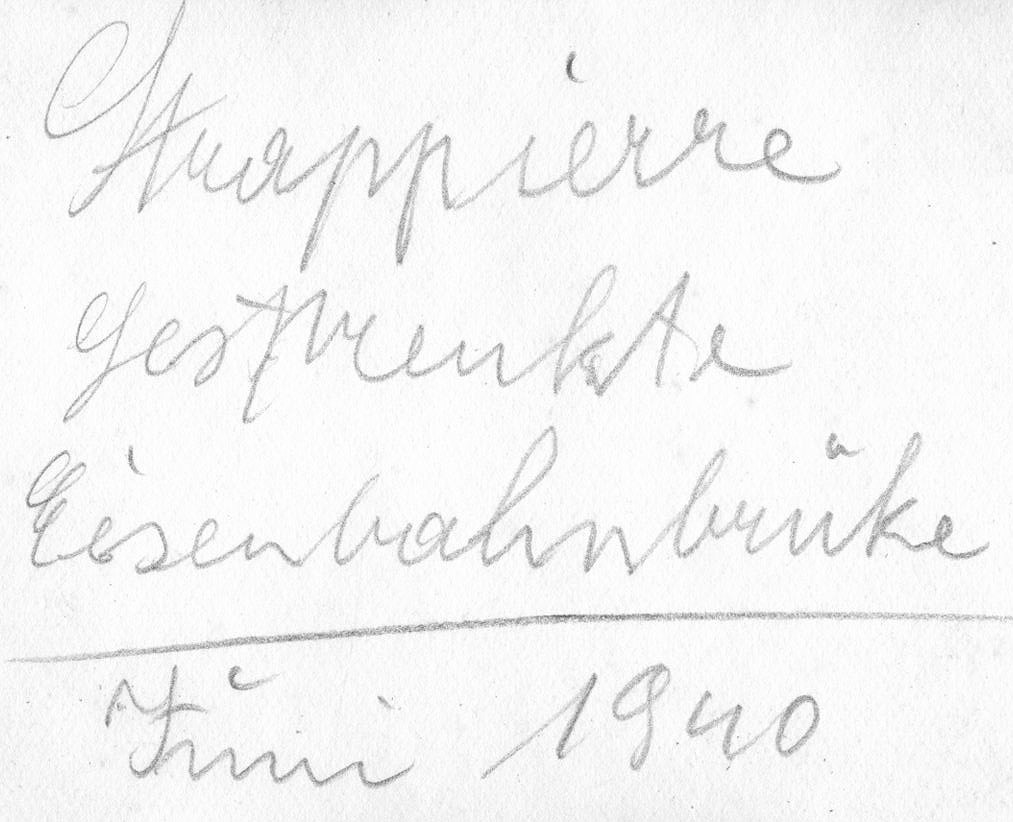 Strappierre
gesprenkte
Eisenbahnbrüke
Juni 1940